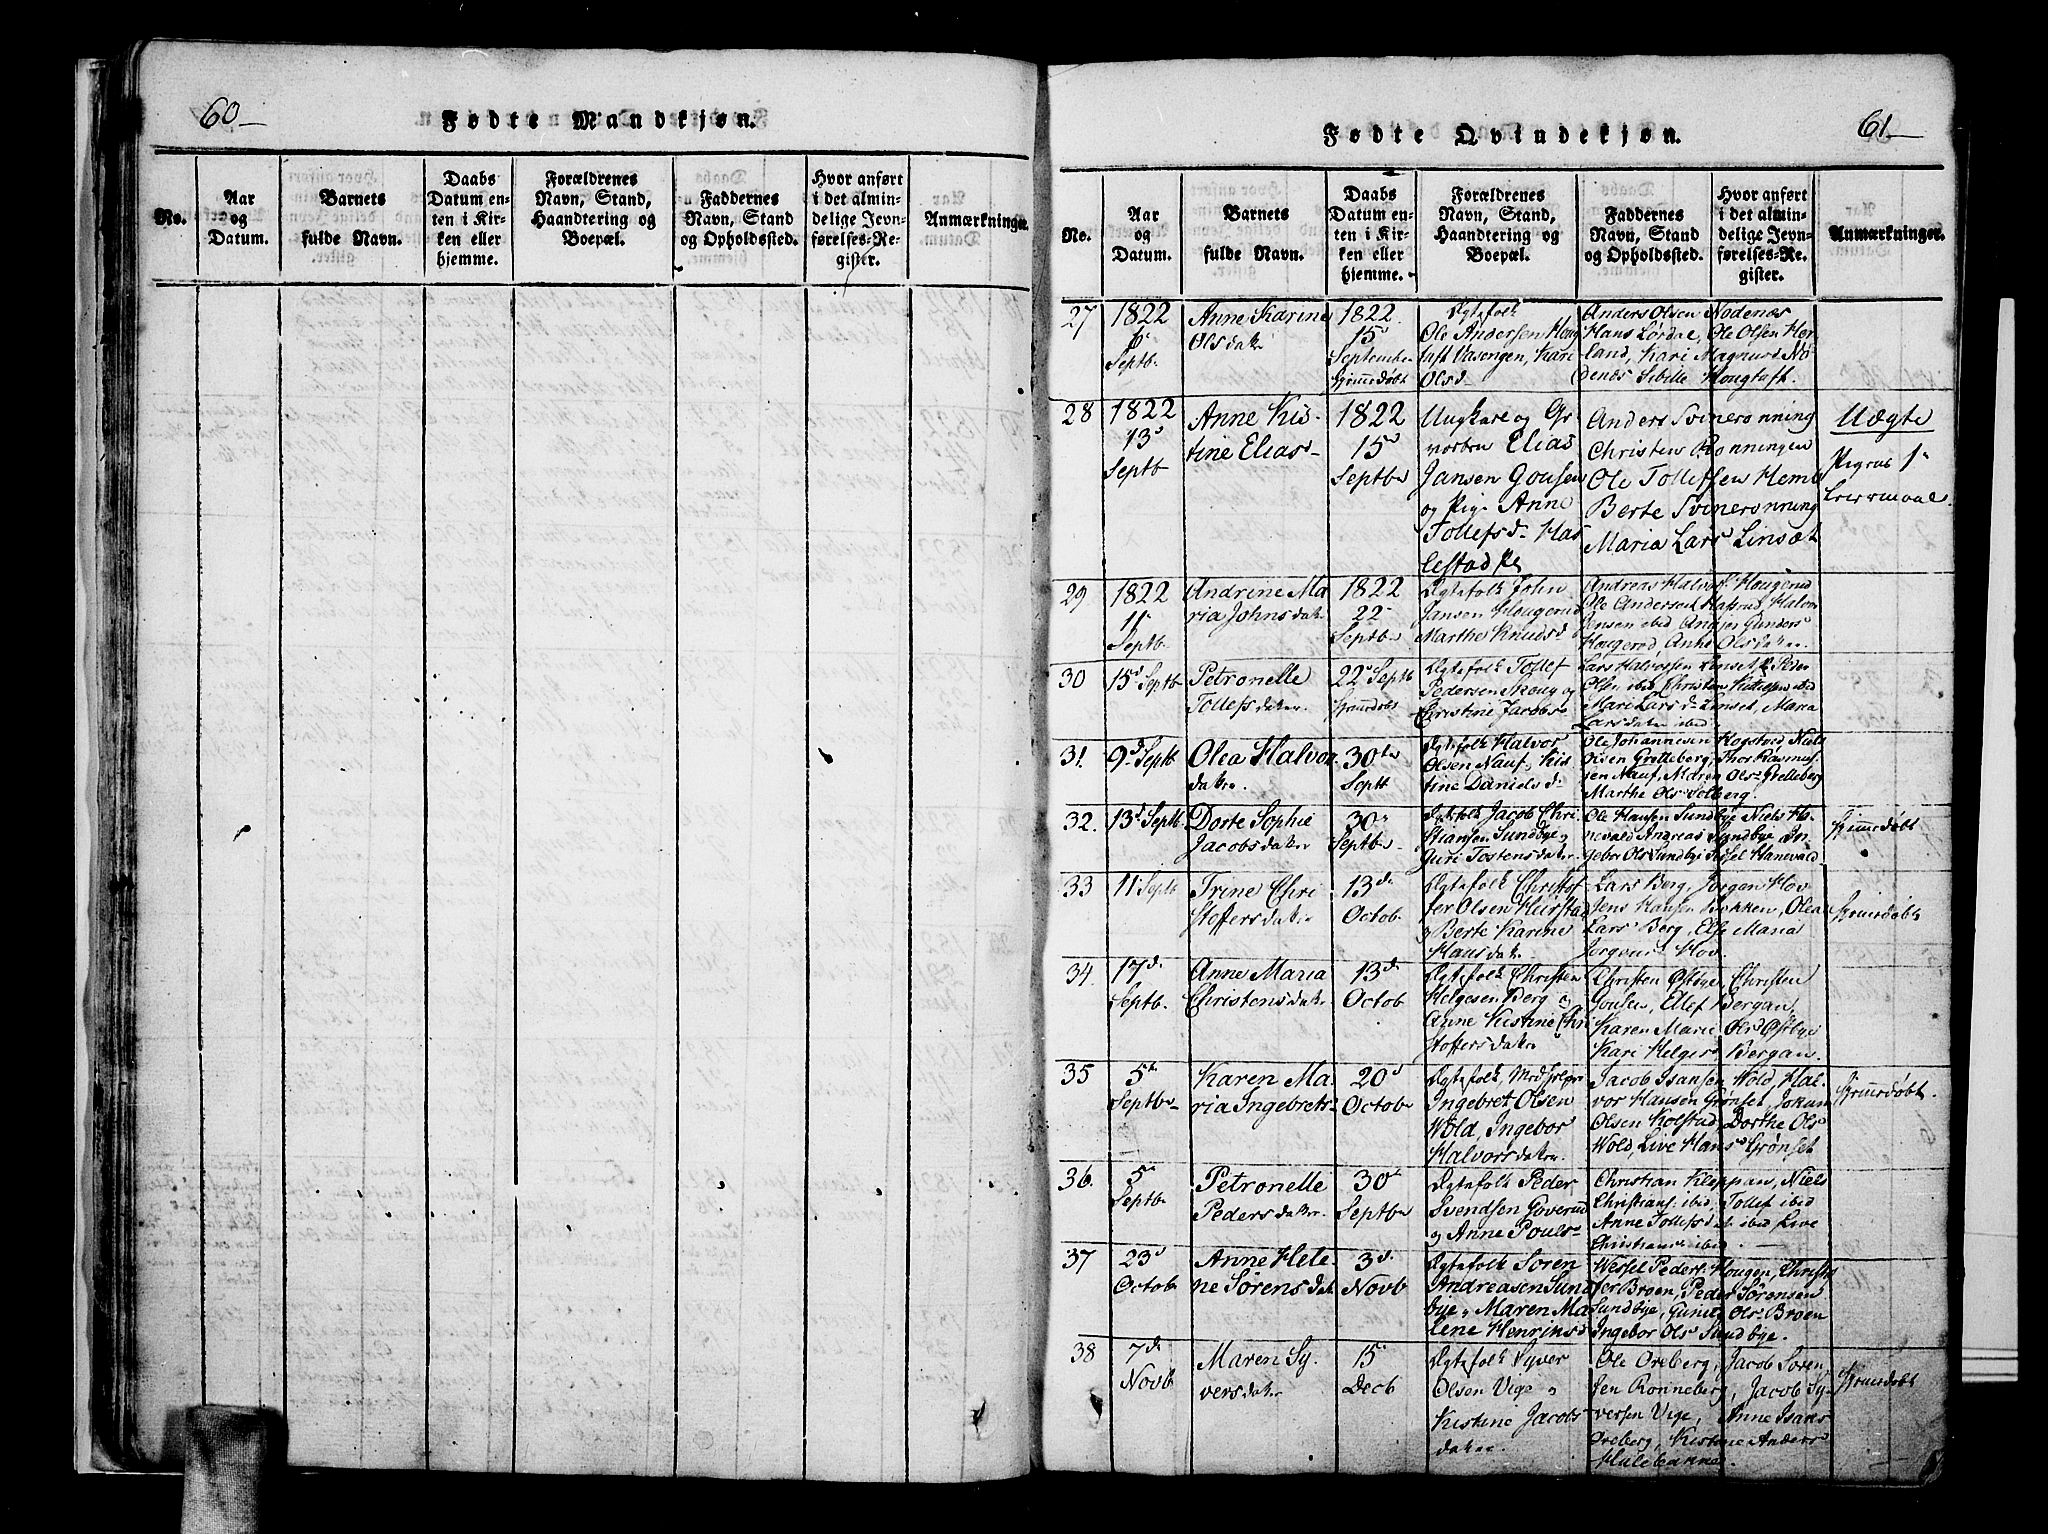 60
Fødte Mandkjøn.
No.
Aar
og
Datum.
Barnets
fulde Navn.
Daabs
Datum en-
ten i Kir-
ken eller
hjemme.
Forældrenes
Navn, Stand,
Haandtering og
Boepæl.
Faddernes
Navn, Stand
og Opholdssted.
Hvor anført
i det almin-
delige Jevn-
førelses-Re-
gister.
Anmærkninger.
61
Fødte Qvindekjøn.
No.
Aar
og
Datum.
Barnets
fulde Navn.
Daabs
Datum en-
ten i Kir-
ken eller
hjemme.
Forældrenes
Navn, Stand,
Haandtering og
Boepæl.
Faddernes
Navn, Stand
og Opholdssted.
Hvor anført
i det almin-
delige Jevn-
førelses-Re-
gister.
Anmærkninger.
27
1822
Septb.
Anne Karine
Olsdater
1822
15
September
hjemedøbt
Ægtefolk
Ole Andersen
Kari
Olsd
Anders Olsen Nodenæs
Hans Lørdal, Ole Olsen Hor
land, Kari Magnusd No
denæs Sibille Hougtaft.
28
1822
13
Septb
Anne Kis-
tine Elias-
1822
15
Septbr
Ungkarl og
Elias
Jansen Gousen
og Pige Anne
Tollefsd Has
lestad
Anders Svinerønning
Christen Rønningen
Ole Tollefsen Hemb
Berte Svinerønning
Maria Lars Linsæt
Uægte
Pigens 1
29
1822
11
Septb.
Andrine Ma
ria Johnsdater
1822
22
Septbr
Ægtefolk John
Jansen Hougerud
Marthe Knudsd
Andreas Halvors Hougerud
Ole Andersen
Jensen ibid
Hougerød, Anne Olsdater.
30
15 Septb
Petronelle
Tollefsdater.
22 Septb
hjemedøbt
Ægtefolk Tollef
Pedersen Skoug og
Christine Jacobs
Lars Halvorsen Linset, Peder
Olsen ibid Christen
Mari Larsd Linset, Maria
Larsdater ibid.
31.
9 Septb
Olea Halvors
dater.
30
Septb
Ægtefolk Halvor
Olsen Nauf, Kis
tine Daniels d
Ole Johannesen Kogstad, Niels
Olsen Grelleberg, Thor Rasmus
sen Nauf, Maren Ols Grelleberg
Marthe Ols Solberg.
32.
13 Septb.
Dorte Sophie
Jacobsdater
30
Septbr
Ægtefolk Jacob Chri
stiansen Sundbye og
Guri Tostensdater.
Ole Hansen Sundbye Niels Ha
nevald Andreas Sundbye In
gebor Ols Sundbye Sissel Hanevald
hjemedøbt
33
11 Septb
Trine Chri
stoffersdater
13
Octob
Ægtefolk Christof
fer Olsen
og Berte Karine
Hansdater
Lars Berg, Jørgen Hov
Jens Hansen Bakken, Olea
Lars Berg, Else Maria
Jørgens Hov.
hjemedøbt
34.
17
Septb.
Anne Maria
Christensdater
13
Octob
Ægtefolk Christen
Helgesen Berg og
Anne Kistine Chri
stoffersdater
Christen Østbye, Christen
Gousen, Ellef Bergan,
Karen Marie Olsd Østbye
Kari Helges Bergan.
35
5
Septbr
Karen Ma-
ria Ingebrets-
20
Octobr
Ægtefolk,
Ingebret Olsen
Wold, Ingebor
Halvorsdater
Jacob Isansen Wold, Hal-
vor Hansen Grønset, Johan
Olsen Kolstad, Dorthe Ols
Wold, Live Hans Grønset
hjemedøbt.
36.
5
Septb
Petronelle
Pedersdater.
30
Septbr
Ægtefolk Peder
Svendsen Goverud
og Anne Pouls-
Christian Kleppan, Niels
Christians: ibid, Tollef ibid
Anne Tollefsd ibid Live
Christiansd ibid.
37
23
Octob
Anne Hele-
ne Sørensdat
3
Novb
Ægtefolk Søren
Andreasen Sund
bye og Maren Ma
lene Henriks d
Wessel Peders: Hougen, Christof
fer Broen, Peder Sørensen
Sundbye, Ols Broen
Ingebor Ols Sundbye.
38
7
Novb
Maren Sy-
versdater
15
Decb
Ægtefolk Syver
Olsen Vige og
Kistine Jacobs
dater
Ole Oreberg, Jacob Søren
sen Rønneberg, Jacob Sy-
versen Vige, Anne Isaks
Oreberg, Kistine Anders
hjemedøbt